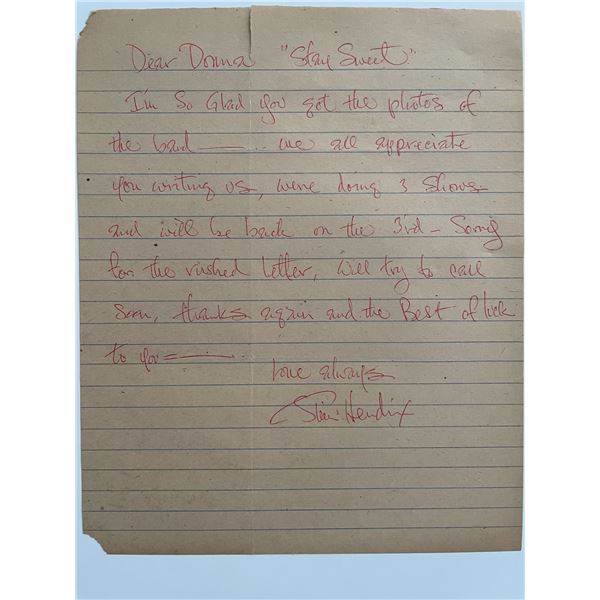 Dear Donna "Stay Sweet"
I'm So Glad you got the photos of
the band —— we all appreciate
you writing us, were doing 3 shows
and will be back on the 3rd – Sorry
for the rushed letter, will try to call
soon, thanks again and the Best of luck
to you ——
Love always
Hendrix